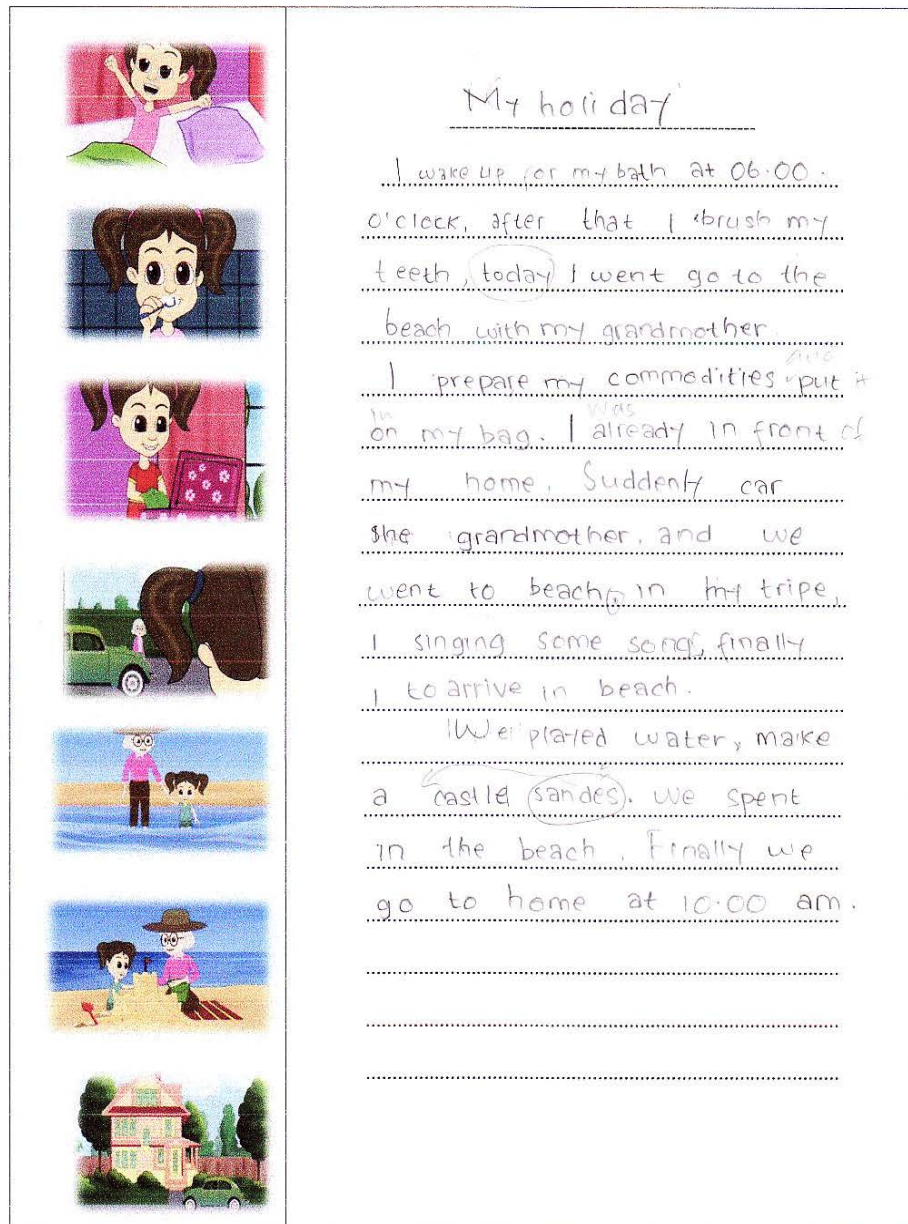 My holiday
I wake up for my bath at 06.00.
o'clock, after that I brush my
teeth, today I went go to the
beach with my grandmother
and
I prepare my commodities put it
in was
on my bag. I already in front of
my home. Suddenly car
she grandmother, and we
went to beach, in my tripe,
I singing some song, finally
I to arrive in beach.
We played water, make
a castle sandes. We spent
in the beach. Finally we
go to home at 10.00 am.